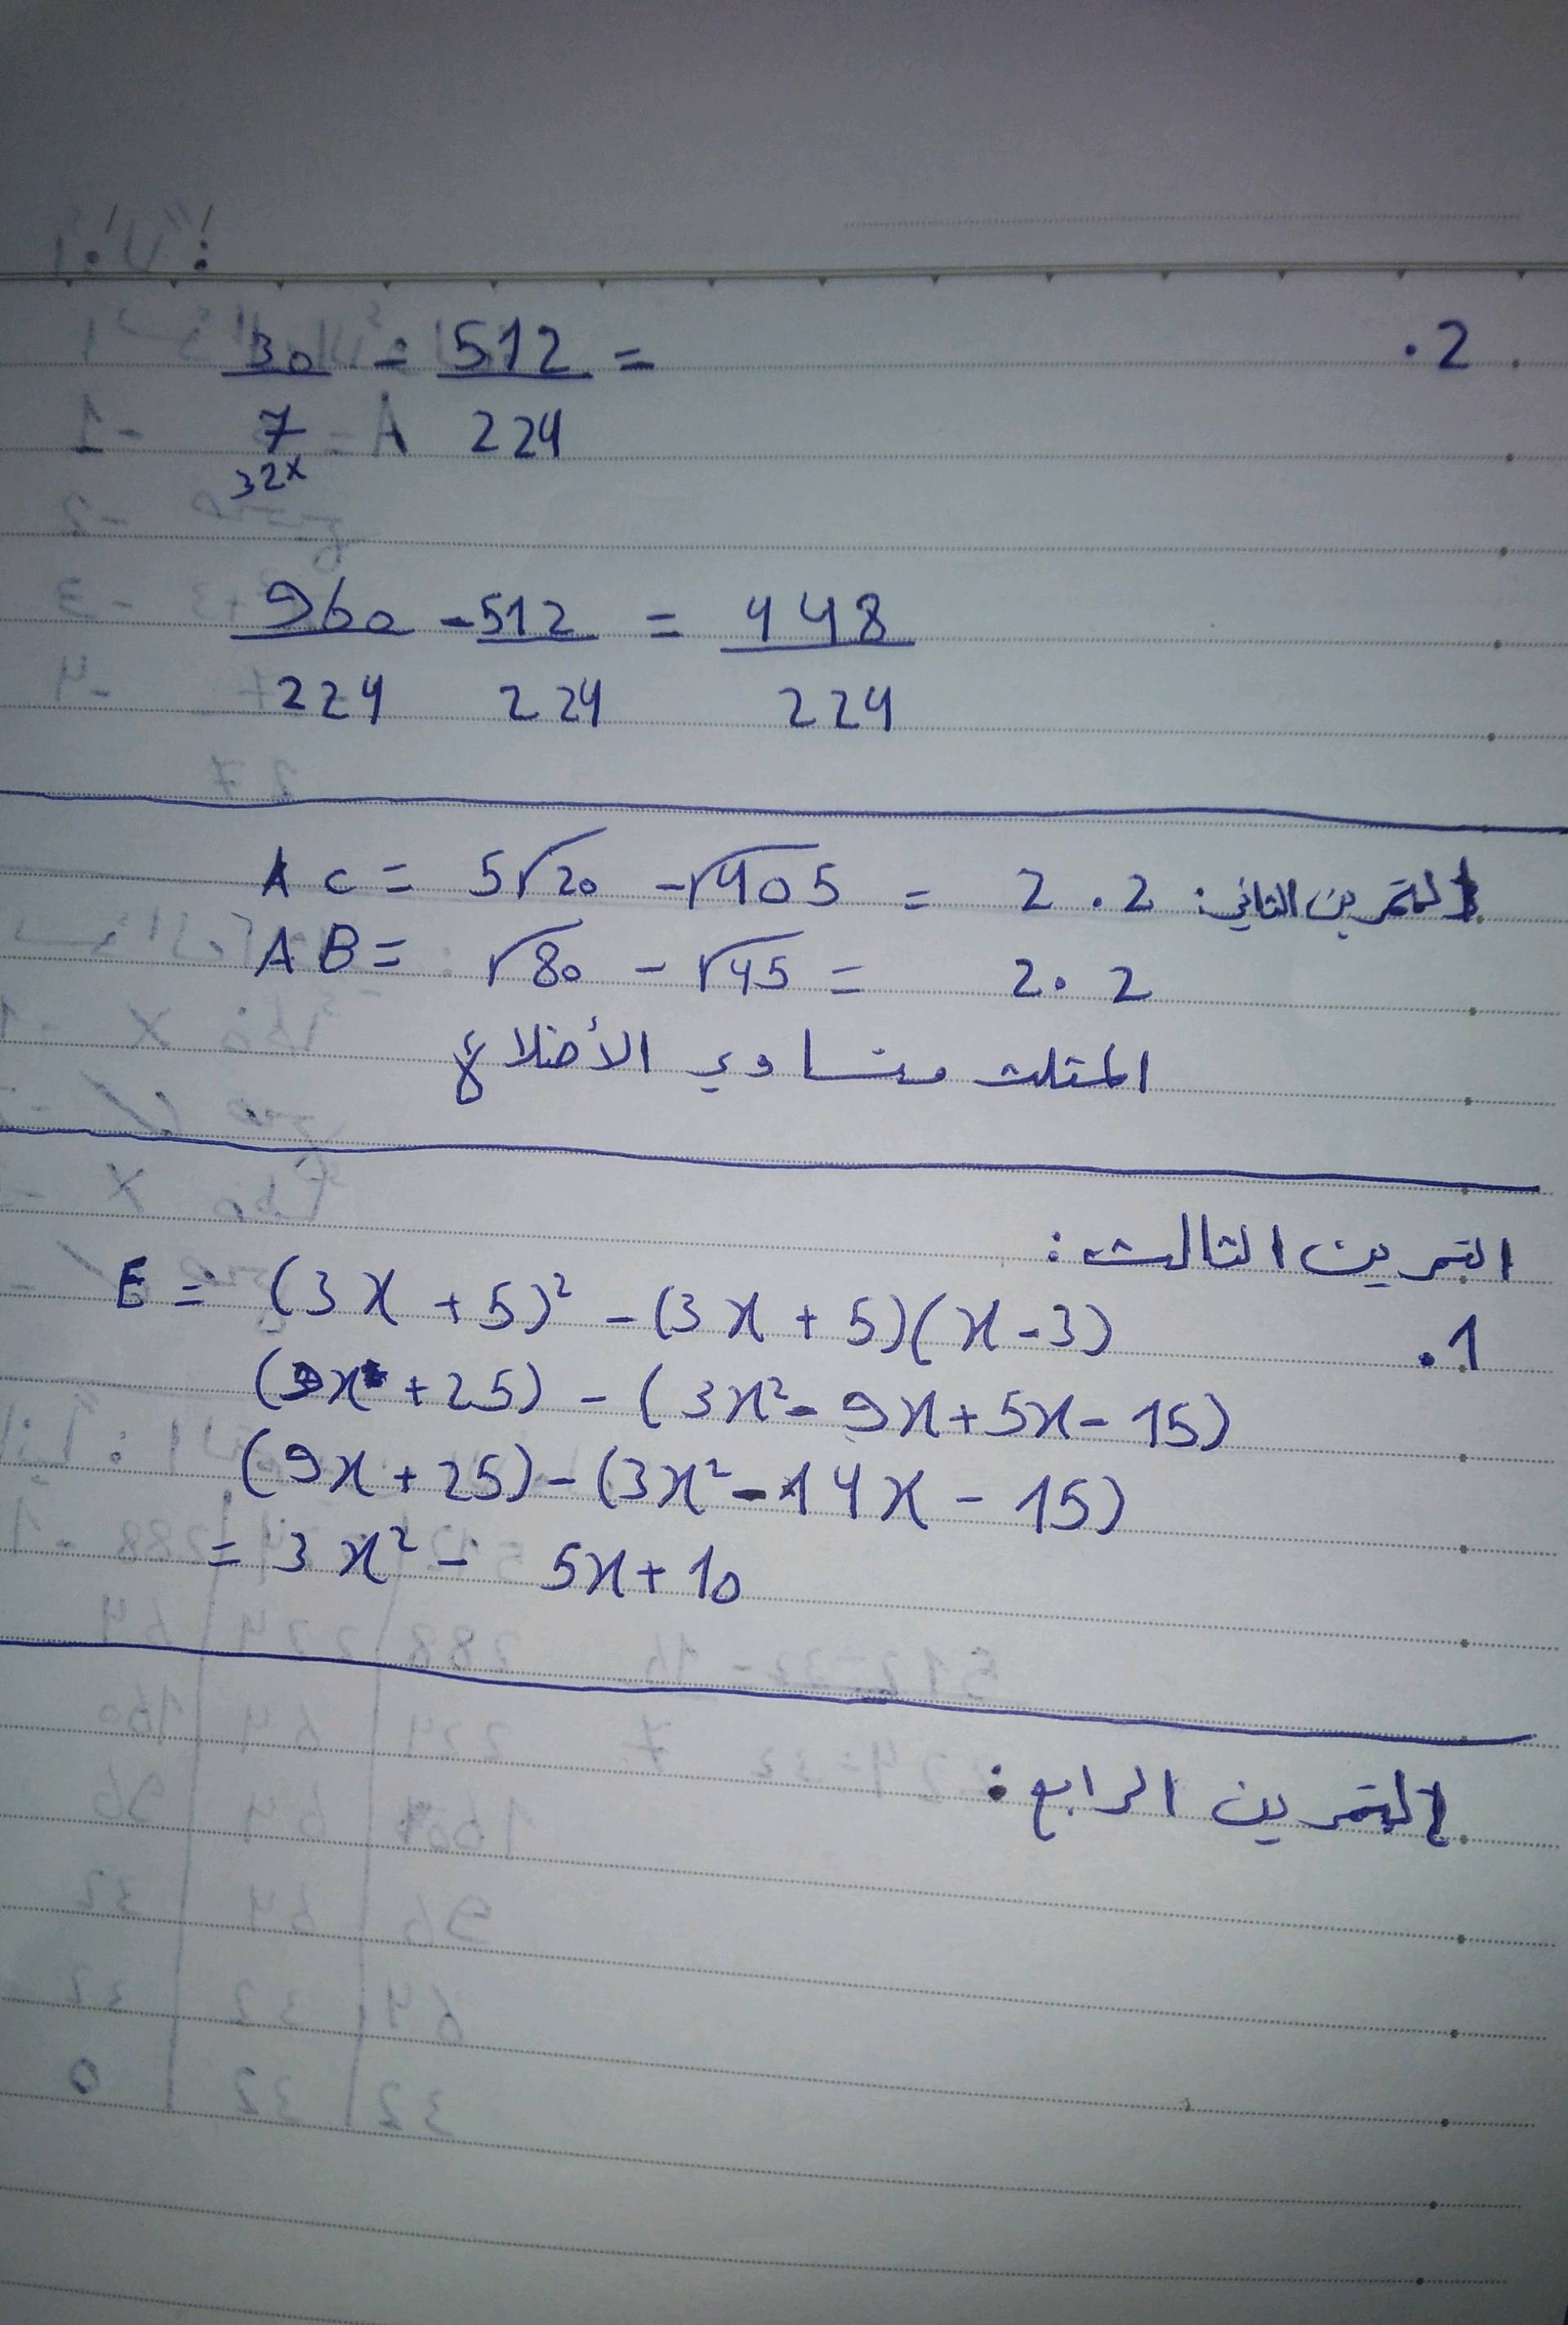 2.
30/7 - 512/224 =
32x
960/224 - 512/224 = 448/224
التمرين الثاني:
AC = 5√20 - √405 = 2.2
AB = √80 - √45 = 2.2
المثلث متساوي الأضلاع
التمرين الثالث:
1.
E = (3x + 5)² - (3x + 5)(x - 3)
(9x + 25) - (3x² - 9x + 5x - 15)
(9x + 25) - (3x² - 14x - 15)
= 3x² - 5x + 10
التمرين الرابع: